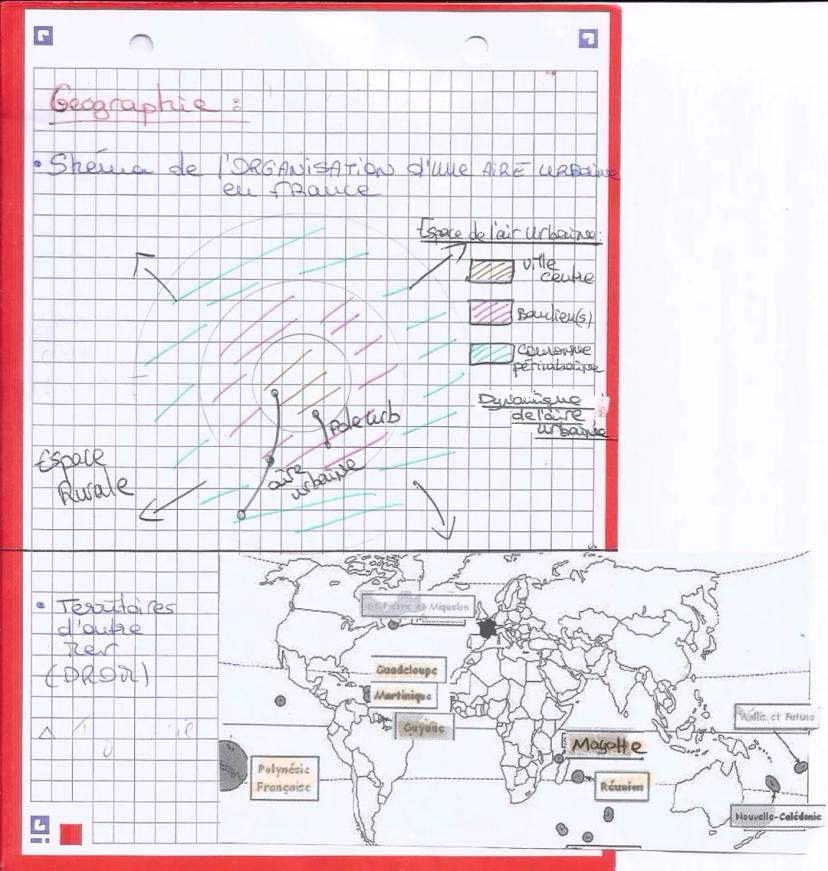 Géographie :
• Shéma de l'ORGANISATION d'une AIRE URBaine
en fRance
Espace de l'air Urbaine :
Ville
centre
Banlieu(s)
Couronne
périurbaine
Dynamique
de l'aire
urbaine
Pole urb
aire
urbaine
Espace
Rurale
• Territoires
d'outre
Mer
(DROM)
St-Pierre et Miquelon
Guadeloupe
Martinique
Guyane
Mayotte
Wallis et Futuna
Polynésie
Française
Réunion
Nouvelle-Calédonie